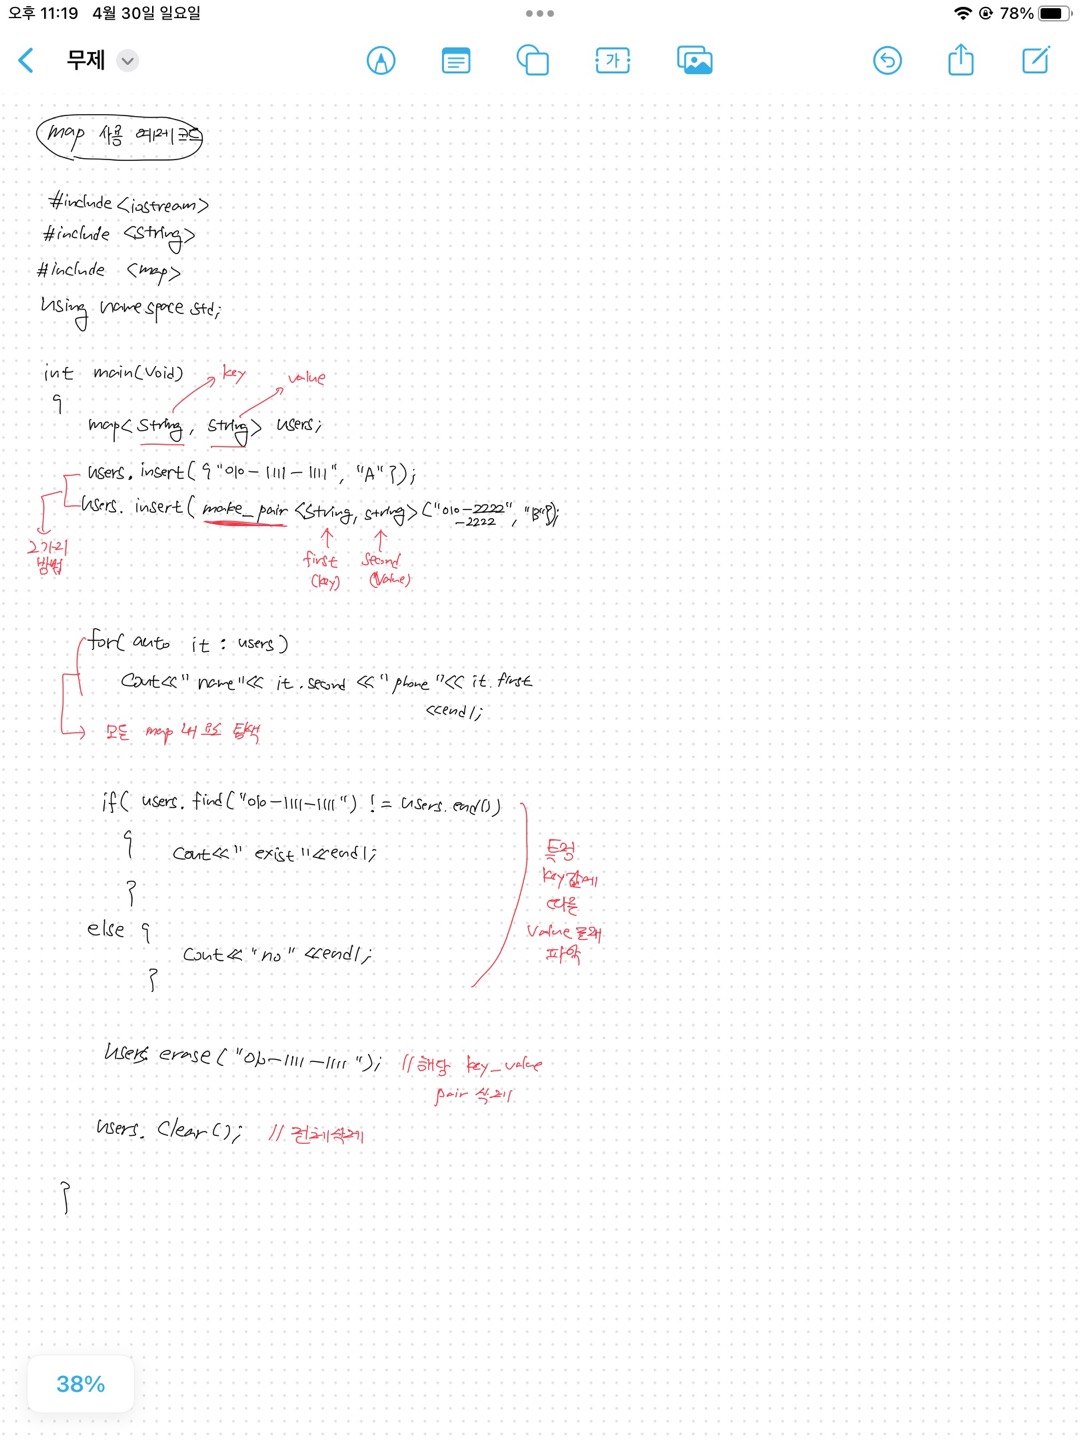 오후 11:19 4월 30일 일요일
78%
무제
가
map 사용 예제 코드
#include <iostream>
#include <string>
#include <map>
using namespace std;
int main(void)
key
value
{
map< string, string> users;
users. insert( {"010-1111-1111", "A"});
users. insert( make_pair <string, string>("010-2222
-2222", "B"});
2가지
방법
first
(key)
second
(value)
for( auto it : users)
cout<<" name"<< it.second <<" phone "<< it. first
<<endl;
모든 map 내 요소 탐색
if( users. find("010-1111-1111") != users.end())
{
cout<<" exist "<<endl;
}
else {
cout<< "no" <<endl;
}
특정
key값에
따른
value 존재
파악
users. erase ( "010-1111-1111 "); //해당 key_value
pair 삭제
users. clear(); // 전체삭제
}
38%